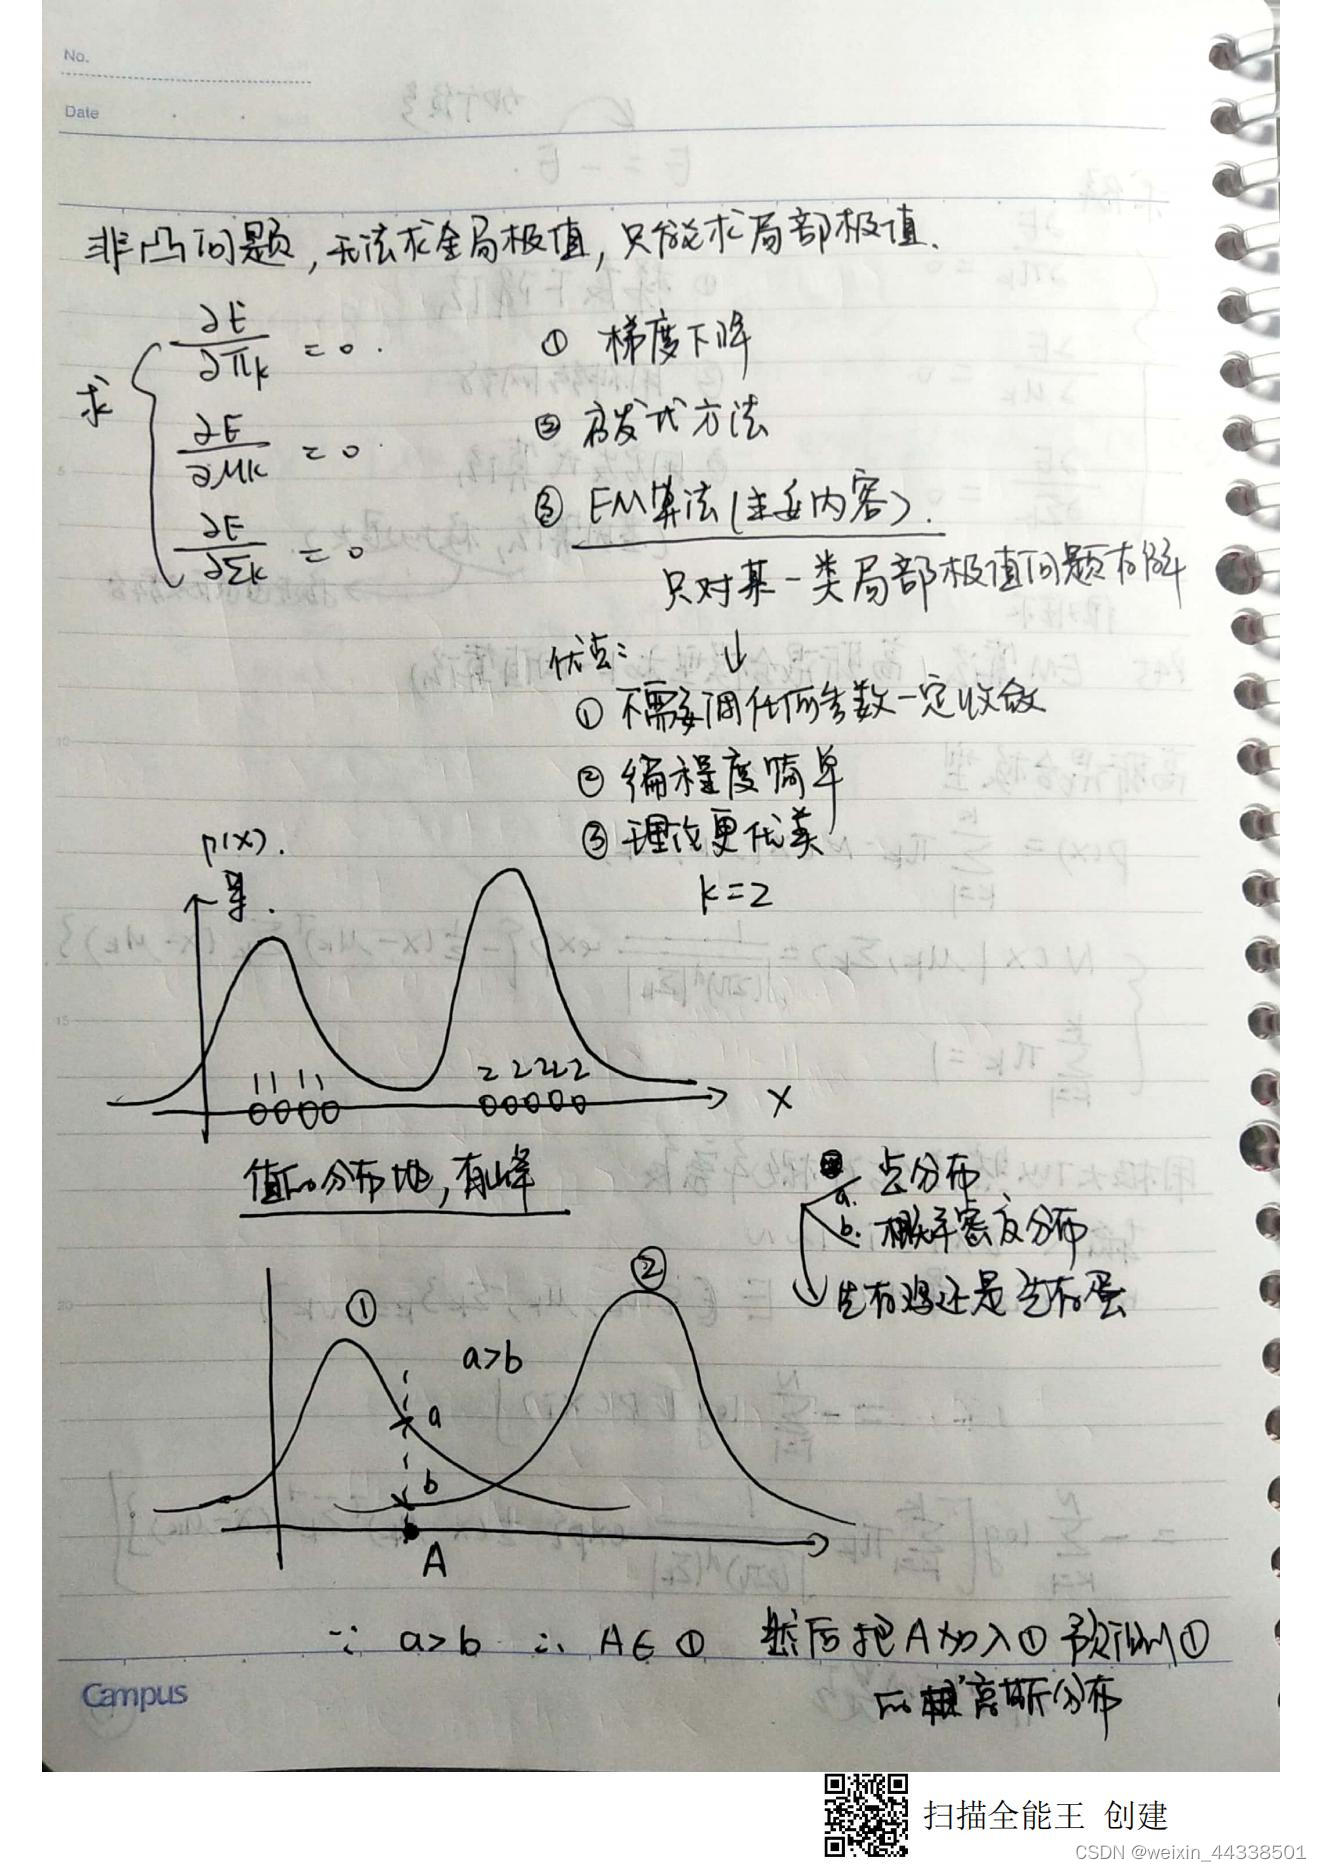 No.
Date
非凸问题,无法求全局极值,只能求局部极值.
求
∂E/∂πk = 0.
∂E/∂μk = 0.
∂E/∂Σk = 0
① 梯度下降
② 启发式方法
③ EM算法(主要内容).
只对某一类局部极值问题有解
优点: ↓
① 不需要调任何参数一定收敛
② 编程度简单
③ 理论更优美
k=2
p(x).
1 1 1 1
2 2 2 2 2
x
值的分布地,有山峰
a. 点分布
b. 概率密度分布
先有鸡还是先有蛋
①
②
a>b
a
b
A
∵ a>b ∴ A∈① 然后把A加入①预测①
的 高斯分布
Campus
扫描全能王 创建
CSDN @weixin_44338501